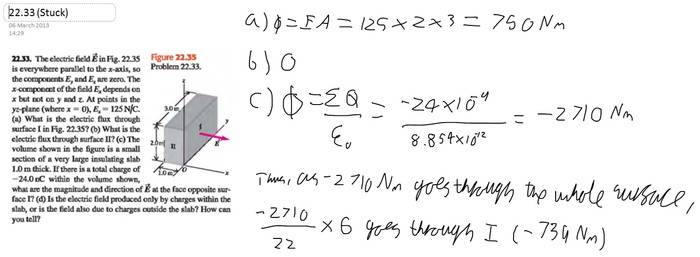 22.33 (Stuck)
06 March 2013
14:29
22.33. The electric field E⃗ in Fig. 22.35
is everywhere parallel to the x-axis, so
the components Ey and Ez are zero. The
x-component of the field Ex depends on
x but not on y and z. At points in the
yz-plane (where x = 0), Ex = 125 N/C.
(a) What is the electric flux through
surface I in Fig. 22.35? (b) What is the
electric flux through surface II? (c) The
volume shown in the figure is a small
section of a very large insulating slab
1.0 m thick. If there is a total charge of
−24.0 nC within the volume shown,
what are the magnitude and direction of E⃗ at the face opposite sur-
face I? (d) Is the electric field produced only by charges within the
slab, or is the field also due to charges outside the slab? How can
you tell?
Figure 22.35
Problem 22.33.
z
3.0 m
y
I
2.0 m
II
E⃗
O
1.0 m
x
a) ϕ = EA = 125 × 2 × 3 = 750 Nm
b) 0
c) ϕ = ΣQ / ε₀ = −24×10⁻⁹ / 8.854×10⁻¹² = −2710 Nm
Thus, as −2710 Nm goes through the whole surface,
−2710 / 22 × 6 goes through I (−739 Nm)